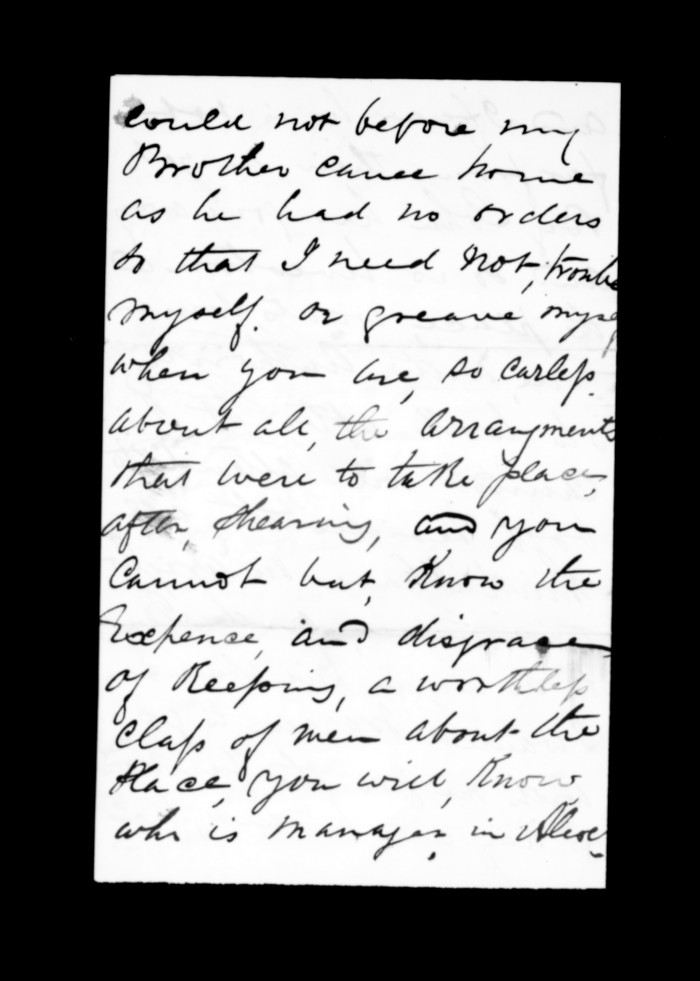 could not before my
Brother came home
as he had no orders
so that I need not, trouble
myself. or greave myse
when you are, so carless
about all, the arrangments
that were to take place,
after, shearing, and you
cannot but, Know the
Expence, and disgrace
of Keeping, a worthless
class of men about the
Place, you will, Know
who is manager, in